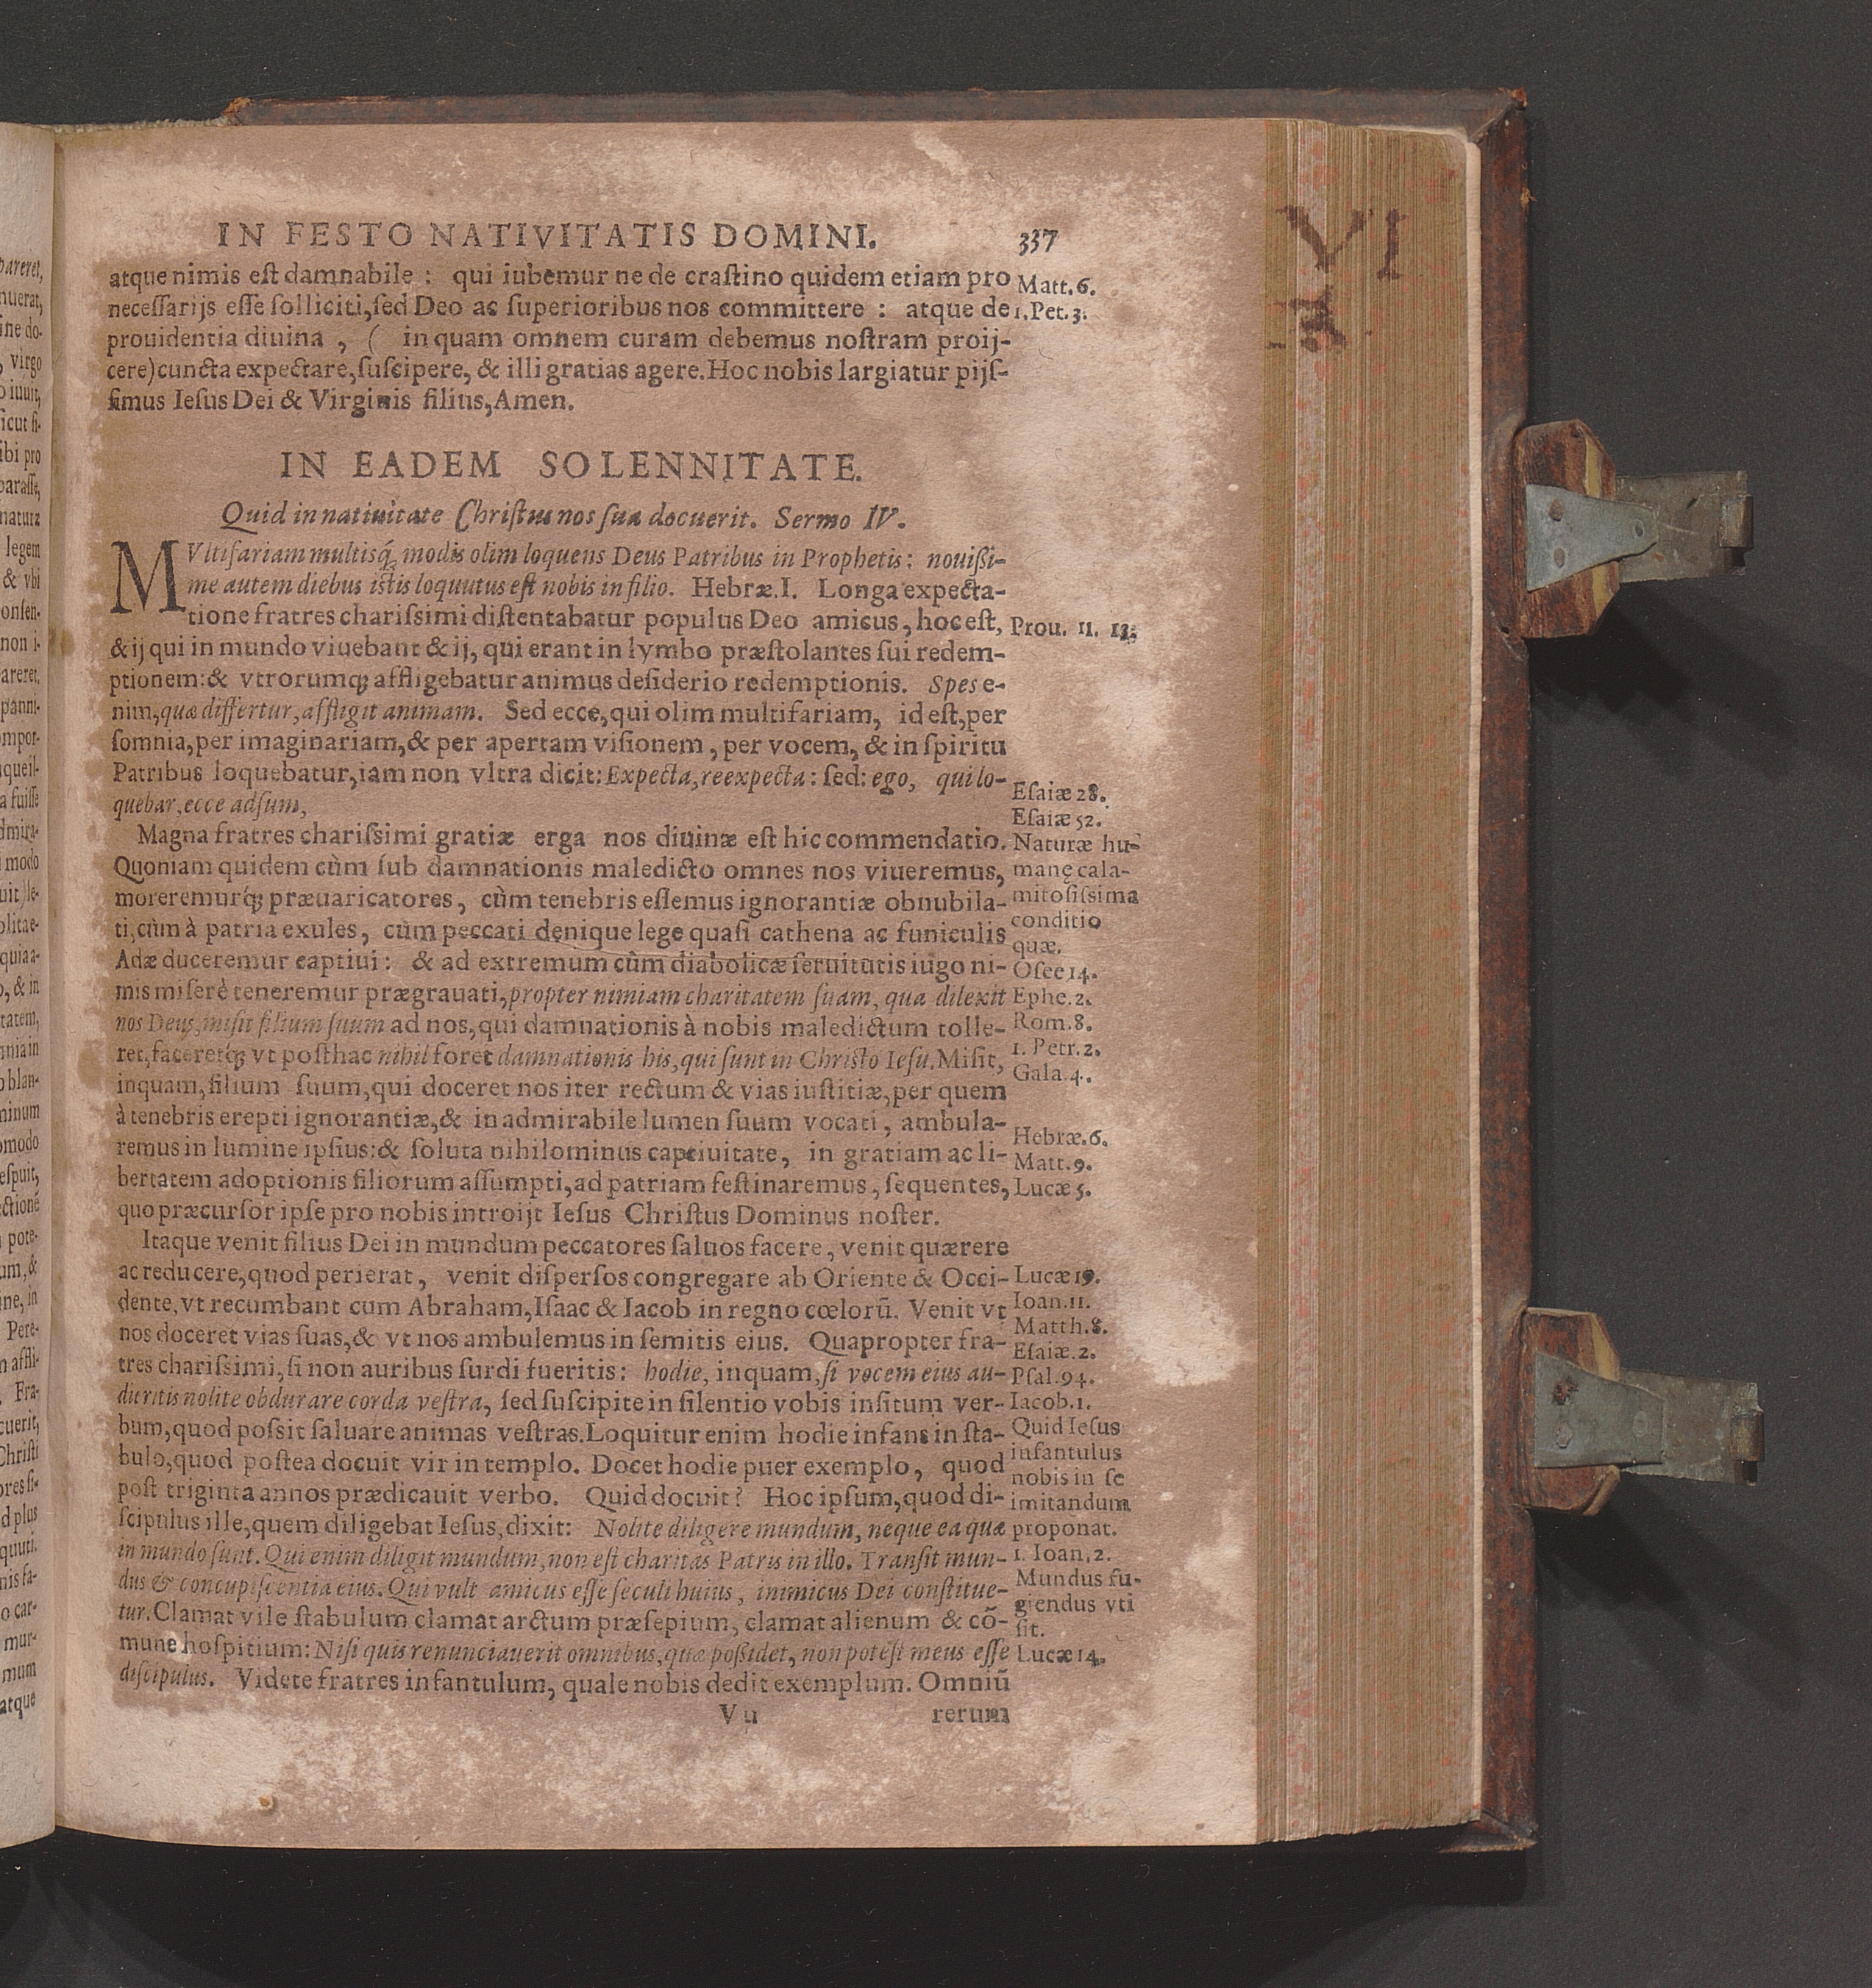 IN FESTO NATIVITATIS DOMINI. 337
atque nimis eſt damnabile : qui iubemur ne de craſtino quidem etiam pro
neceſſarijs eſſe ſolliciti, ſed Deo ac ſuperioribus nos committere : atque de
prouidentia diuina , ( in quam omnem curam debemus noſtram proij-
cere) cuncta expectare, ſuſcipere, & illi gratias agere. Hoc nobis largiatur pijſ-
ſimus Ieſus Dei & Virginis filius, Amen.
Matt. 6.
1. Pet. 3.
IN EADEM SOLENNITATE.
Quid in natiuitate Chriſtus nos ſua docuerit. Sermo IV.
MVltifariam multisq́; modis olim loquens Deus Patribus in Prophetis: nouißi-
me autem diebus iſtis loquutus eſt nobis in filio. Hebræ. I. Longa expecta-
tione fratres chariſsimi diſtentabatur populus Deo amicus, hoc eſt,
& ij qui in mundo viuebant & ij, qui erant in lymbo præſtolantes ſui redem-
ptionem: & vtrorumq; affligebatur animus deſiderio redemptionis. Spes e-
nim, quæ differtur, affligit animam. Sed ecce, qui olim multifariam, id eſt, per
ſomnia, per imaginariam, & per apertam viſionem, per vocem, & in ſpiritu
Patribus loquebatur, iam non vltra dicit: Expecta, reexpecta: ſed: ego, qui lo-
quebar, ecce adſum,
Magna fratres chariſsimi gratiæ erga nos diuinæ eſt hic commendatio.
Quoniam quidem cùm ſub damnationis maledicto omnes nos viueremus,
moreremurq́; præuaricatores, cùm tenebris eſſemus ignorantiæ obnubila-
ti, cùm à patria exules, cùm peccati denique lege quaſi cathena ac funiculis
Adæ duceremur captiui: & ad extremum cùm diabolicæ ſeruitutis iugo ni-
mis miſerè teneremur prægrauati, propter nimiam charitatem ſuam, qua dilexit
nos Deus, miſit filium ſuum ad nos, qui damnationis à nobis maledictum tolle-
ret, faceretq́; vt poſthac nihil foret damnationis his, qui ſunt in Chriſto Ieſu. Miſit,
inquam, filium ſuum, qui doceret nos iter rectum & vias iuſtitiæ, per quem
à tenebris erepti ignorantiæ, & in admirabile lumen ſuum vocati, ambula-
remus in lumine ipſius: & ſoluta nihilominus captiuitate, in gratiam ac li-
bertatem adoptionis filiorum aſſumpti, ad patriam feſtinaremus, ſequentes,
quo præcurſor ipſe pro nobis introijt Ieſus Chriſtus Dominus noſter.
Itaque venit filius Dei in mundum peccatores ſaluos facere, venit quærere
ac reducere, quod perierat, venit diſperſos congregare ab Oriente & Occi-
dente, vt recumbant cum Abraham, Iſaac & Iacob in regno cœlorū. Venit vt
nos doceret vias ſuas, & vt nos ambulemus in ſemitis eius. Quapropter fra-
tres chariſsimi, ſi non auribus ſurdi fueritis: hodie, inquam, ſi vocem eius au-
dieritis nolite obdurare corda veſtra, ſed ſuſcipite in ſilentio vobis inſitum ver-
bum, quod poſsit ſaluare animas veſtras. Loquitur enim hodie infans in ſta-
bulo, quod poſtea docuit vir in templo. Docet hodie puer exemplo, quod
poſt triginta annos prædicauit verbo. Quid docuit? Hoc ipſum, quod di-
ſcipulus ille, quem diligebat Ieſus, dixit: Nolite diligere mundum, neque ea quæ
in mundo ſunt. Qui enim diligit mundum, non eſt charitas Patris in illo. Tranſit mun-
dus & concupiſcentia eius. Qui vult amicus eſſe ſeculi huius, inimicus Dei conſtitue-
tur. Clamat vile ſtabulum clamat arctum præſepium, clamat alienum & cō-
mune hoſpitium: Niſi quis renunciauerit omnibus, quæ poßidet, non poteſt meus eſſe
diſcipulus. Videte fratres infantulum, quale nobis dedit exemplum. Omniū
Prou. 11. 13.
Eſaiæ 28.
Eſaiæ 52.
Naturæ hu-
manę cala-
mitoſiſsima
conditio
quæ.
Oſee 14.
Ephe. 2.
Rom. 8.
1. Petr. 2.
Gala. 4.
Hebræ. 6.
Matt. 9.
Lucæ 5.
Lucæ 19.
Ioan. 11.
Matth. 8.
Eſaiæ. 2.
Pſal. 94.
Iacob. 1.
Quid Ieſus
infantulus
nobis in ſe
imitandum
proponat.
1. Ioan. 2.
Mundus fu-
giendus vti
ſit.
Lucæ 14.
V u rerum